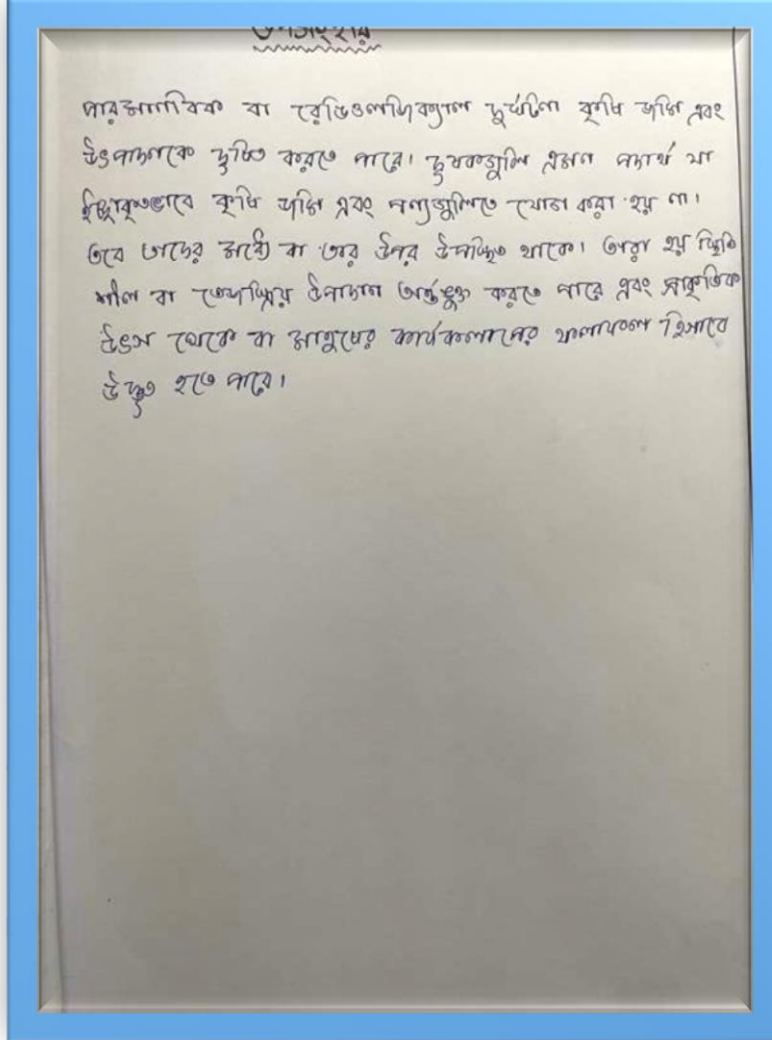 উপসংহার
পারমাণবিক বা রেডিওলজিক্যাল দুর্ঘটনা কৃষি জমি এবং
উৎপাদনকে দূষিত করতে পারে। দূষকগুলি এমন পদার্থ যা
ইচ্ছাকৃতভাবে কৃষি জমি এবং পণ্যগুলিতে যোগ করা হয় না।
তবে তাদের মধ্যে বা তার উপর উপস্থিত থাকে। তারা হয় স্থিতি
শীল বা তেজস্ক্রিয় উপাদান অর্ন্তভুক্ত করতে পারে এবং প্রাকৃতিক
উৎস থেকে বা মানুষের কার্যকলাপের ফলাফল হিসাবে
উদ্ভূত হতে পারে।